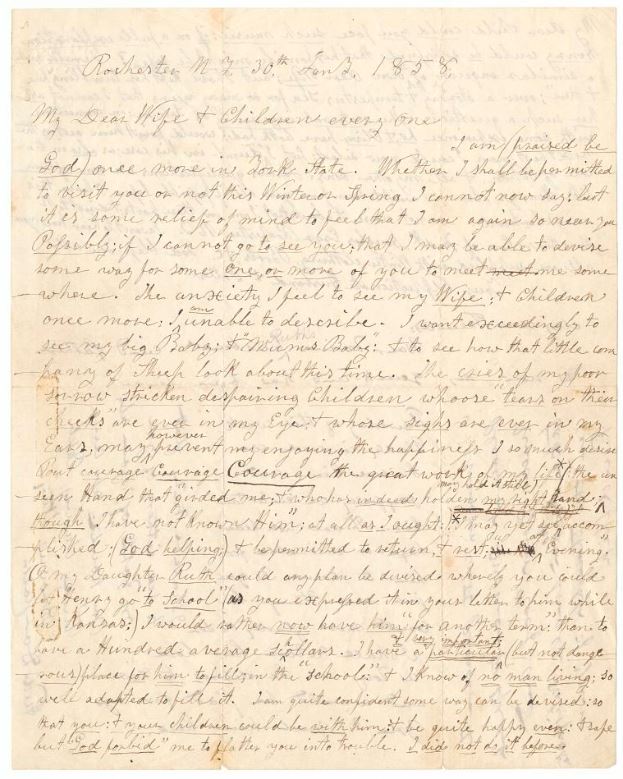 Rochester N Y. 30th Jan 3, 1858,
My Dear Wife & Children every one
I am (praised be
God) once more in York State. Whether I shall be permitted
to visit you or not this Winter or Spring I cannot now say; but
it is some relief of mind to feel that I am again so near you
Possibly; if I cannot go to see you; that I may be able to devise
some way for some one, or more of you to meet meet me some
where. The anxiety I feel to see my Wife; & Children
once more: I am unable to describe. I want exceedingly to
see my big Baby; & "Ruths Baby": & to see how that little com
pany of Sheep look about this time. The cries of my poor
sorrow stricken despairing Children whoose "tears on their
cheeks" are ever in my Eye; & whose sighs are ever in my
Ears, may however prevent my enjoying the happiness I so much desire
But courage Courage Courage the great work of my life (the un
seen Hand that "girded me; & who has indeed holden my right hand; may hold it still;)
though I have not known Him"; at all as I ought:) may yet see accom
plished; (God helping;) & be permitted to return, & rest at Evening."
O my Daughter Ruth could any plan be devised whereby you could
let Henry go "to School" (as you expressed it in your letter to him while
in Kansas;) I would rather now have him "for another term": than to
have a Hundred average schollars. I have a particular & very important; (but not dange
rous) place for him to fill; in the "school:" & I know of no man living; so
well adapted to fill it. I am quite confident some way can be devised; so
that you; & your children could be with him; & be quite happy even: & safe
but "God forbid" me to flatter you into trouble. I did not do it before.